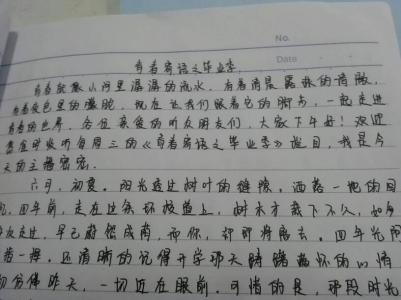 No.
Date
青春寄语之毕业季
青春就像小河里潺潺的流水,有着清晨
夜色里的朦胧,现在让我们跟着它的脚步,一起走进
青春的世界,各位亲爱的听众朋友们,大家下午好!欢迎
准时收听每周三的《青春寄语之毕业季》栏目,我是今
天的主播
六月,初夏。阳光透过树叶的缝隙,洒落一地的
四年前,走在这条环校道上,树木才栽下不久,如今
再次走过,早已蔚然成荫,而你,却即将离去。四年光阴
一挥,还清晰的记得开学那天踌躇满怀的
仿佛昨天,一切近在眼前,可惜的是,那段时光